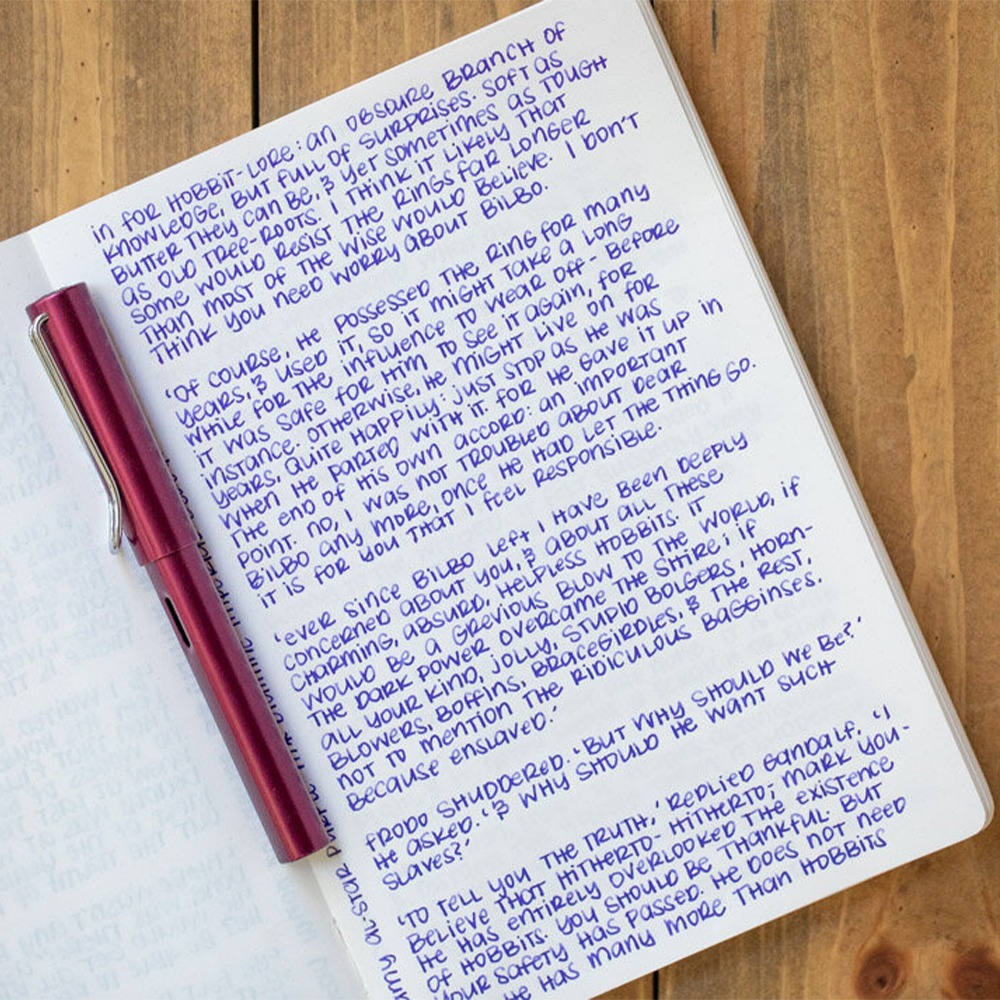 in FOR HOBBIT-LORE: an OBSCURE BRANCH OF
KNOWLEDGE, BUT FULL OF SURPRISES. SOFT AS
BUTTER THEY CAN BE, & YET SOMETIMES AS TOUGH
AS OLD TREE-ROOTS. I THINK IT LIKELY THAT
SOME WOULD RESIST THE RINGS FAR LONGER
THAN MOST OF THE WISE WOULD BELIEVE. I DON'T
THINK YOU NEED WORRY ABOUT BILBO.
'OF COURSE, HE POSSESSED THE RING FOR MANY
YEARS, & USED IT, SO IT MIGHT TAKE A LONG
WHILE FOR THE INFLUENCE TO WEAR OFF - BEFORE
IT WAS SAFE FOR HIM TO SEE IT AGAIN, FOR
INSTANCE. OTHERWISE, HE MIGHT LIVE ON FOR
YEARS, QUITE HAPPILY: JUST STOP AS HE WAS
WHEN HE PARTED WITH IT. FOR HE GAVE IT UP IN
THE END OF HIS OWN ACCORD: AN IMPORTANT
POINT. NO, I WAS NOT TROUBLED ABOUT DEAR
BILBO ANY MORE, ONCE HE HAD LET THE THING GO.
IT IS FOR YOU THAT I FEEL RESPONSIBLE.
'EVER SINCE BILBO LEFT I HAVE BEEN DEEPLY
CONCERNED ABOUT YOU, & ABOUT ALL THESE
CHARMING, ABSURD, HELPLESS HOBBITS. IT
WOULD BE A GREVIOUS BLOW TO THE WORLD, IF
THE DARK POWER OVERCAME THE SHIRE; IF
ALL YOUR KIND, JOLLY, STUPID BOLGERS, HORN-
BLOWERS, BOFFINS, BRACEGIRDLES, & THE REST,
NOT TO MENTION THE RIDICULOUS BAGGINSES,
BECAUSE ENSLAVED.'
FRODO SHUDDERED. 'BUT WHY SHOULD WE BE?'
HE ASKED. '& WHY SHOULD HE WANT SUCH
SLAVES?'
'TO TELL YOU THE TRUTH,' REPLIED GANDALF, 'I
BELIEVE THAT HITHERTO - HITHERTO; MARK YOU -
HE HAS ENTIRELY OVERLOOKED THE EXISTENCE
OF HOBBITS. YOU SHOULD BE THANKFUL. BUT
YOUR SAFETY HAS PASSED. HE DOES NOT NEED
HE HAS MANY MORE THAN HOBBITS
AL-STAR